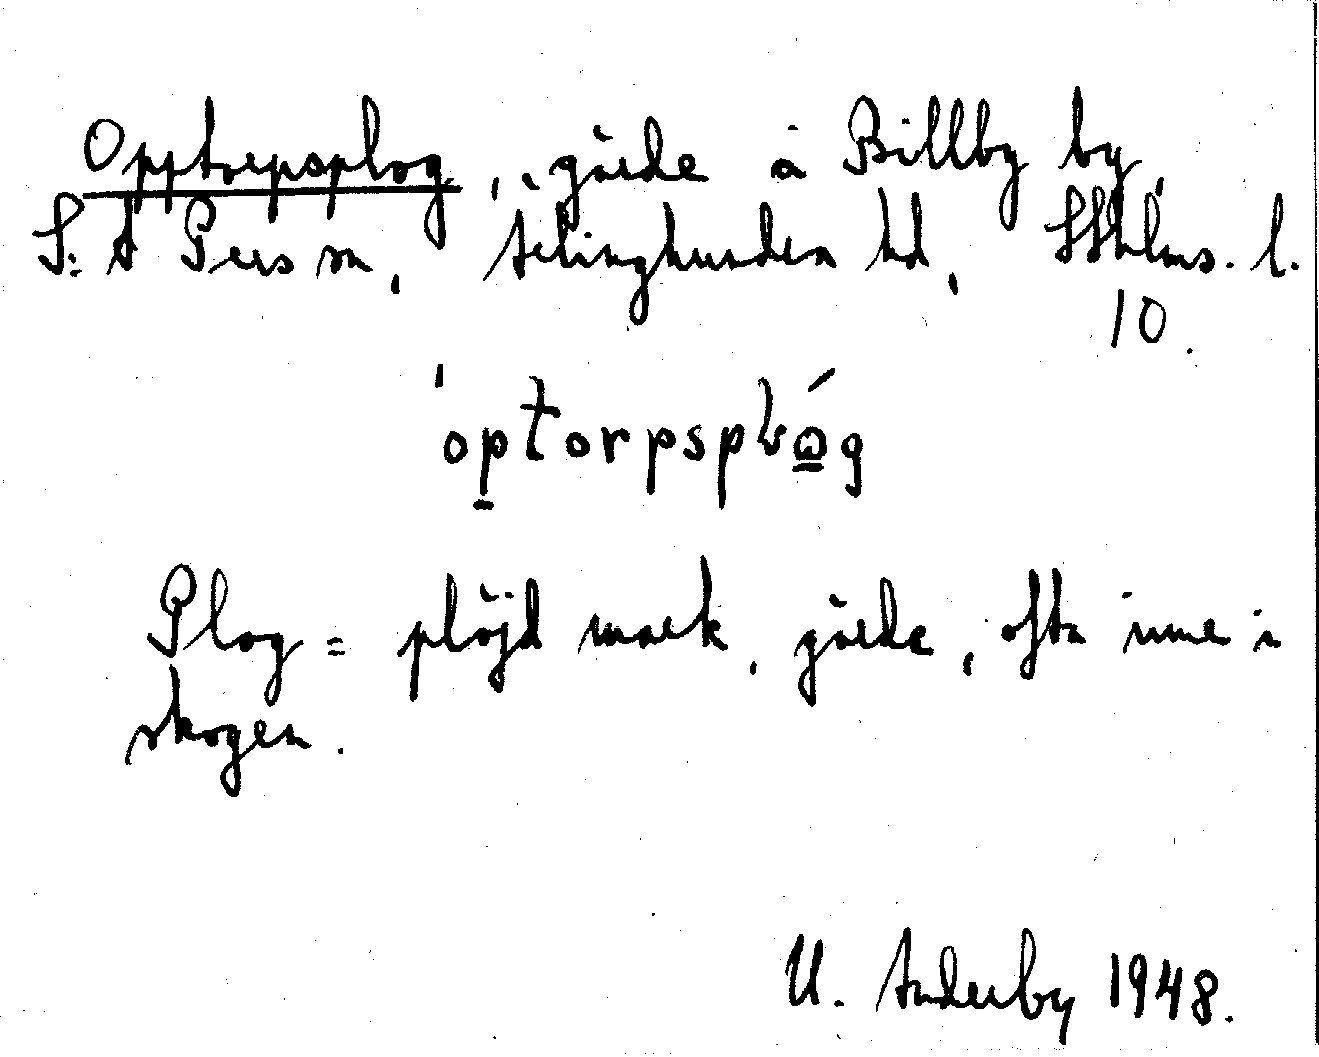 Opptorpsplog, gärde å Billby by,
S:t Pers sn, Ärlinghundra hd, Sthlms. l.
10.
Plog = plöjd mark, gärde, ofta inne i
skogen.
U. Anderby 1948.